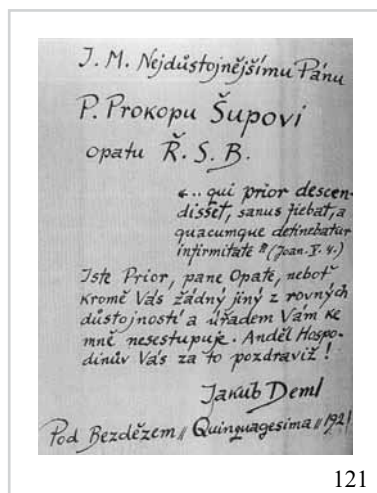 J. M. Nejdůstojnějšímu Pánu
P. Prokopu Šupovi
opatu Ř. S. B.
"... qui prior descen-
disset, sanus fiebat, a
quacumque detinebatur
infirmitate" (Joan. V. 4.)
Jste Prior, pane Opate, neboť
kromě Vás žádný jiný z rovných
důstojností a úřadem Vám ke
mně nesestupuje. Anděl Hospo-
dinův Vás za to pozdraviž!
Jakub Deml
Pod Bezdězem, Quinquagesima, 1921
121